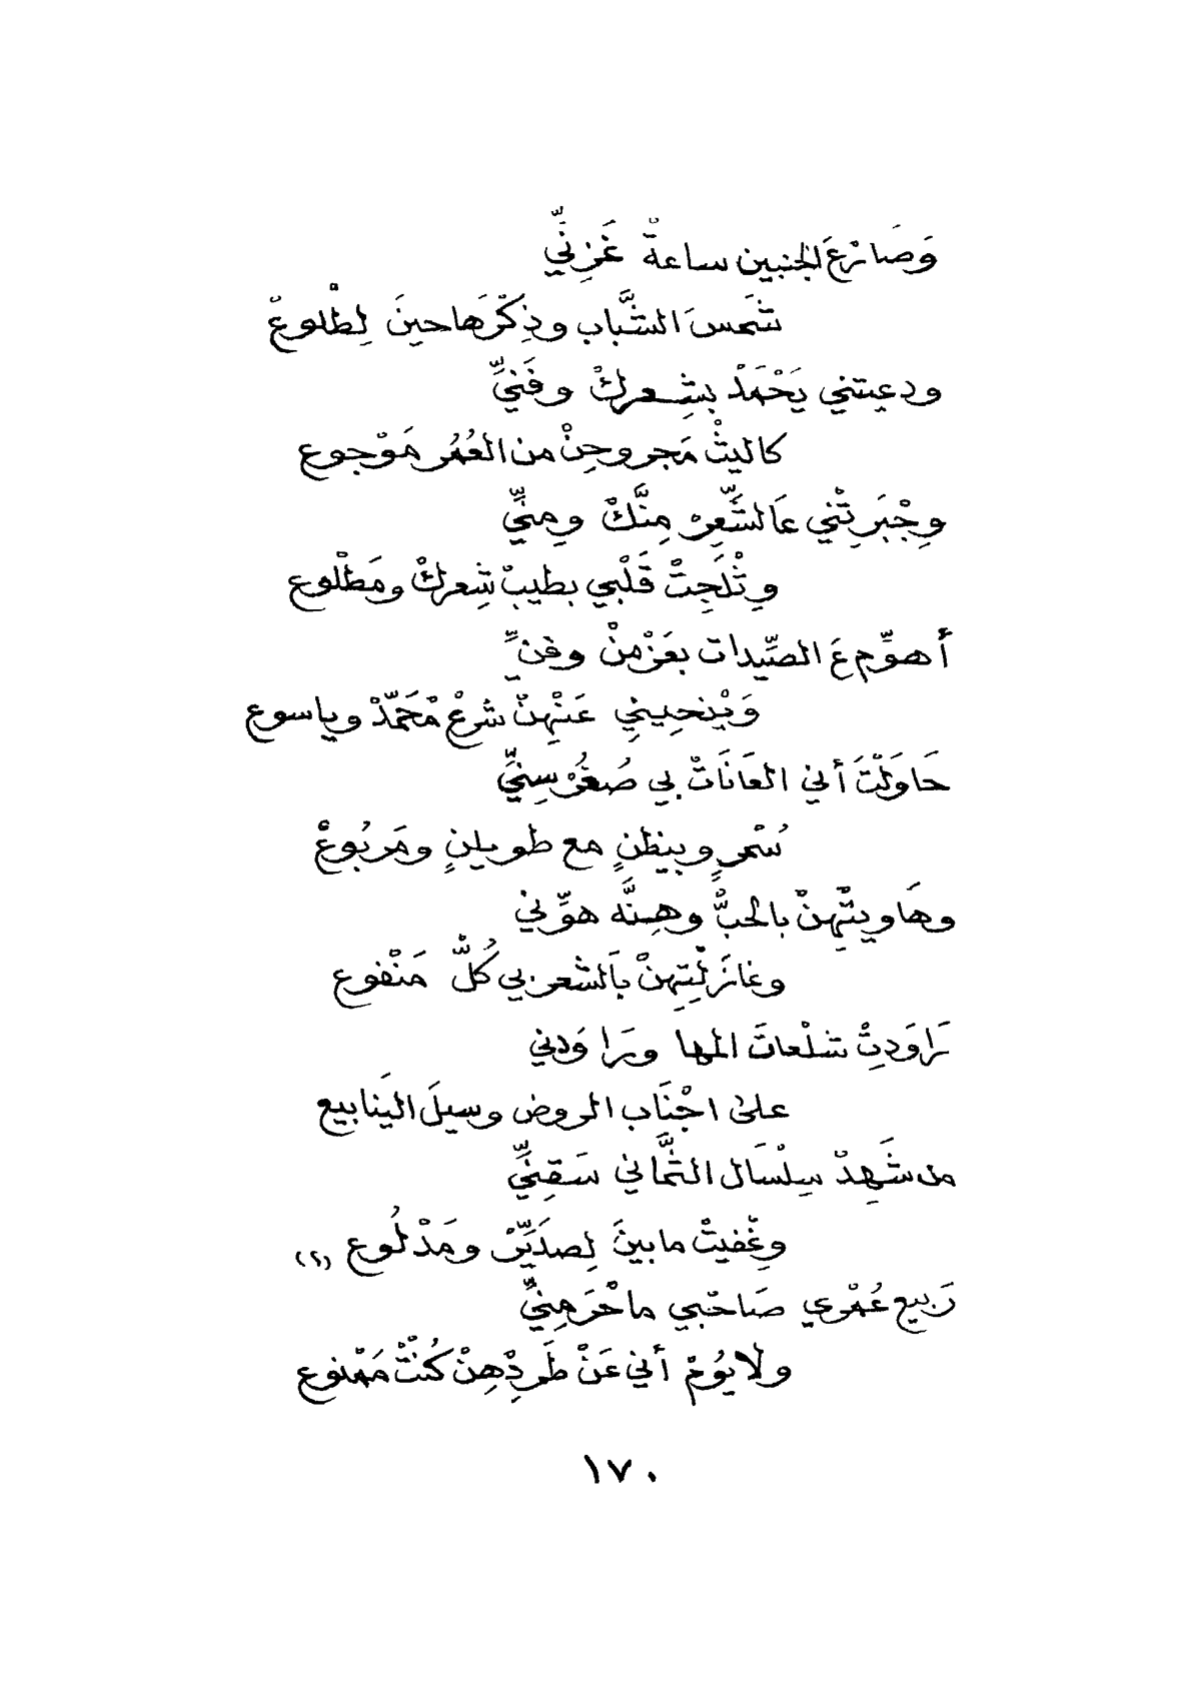 وَصَارْعَ الجنبين ساعةْ غَزِنّي
شَمسَ الشَّباب وذِكْرَها حينَ لِطْلوعْ
ودعيتني يَحْمَدْ بشِعركْ وفَنيِّ
كاليثْ مَجروحِنْ من العُمُر مَوْجوع
وِجْبَرِتْني عَالشِّعِرْ مِنَّكْ ومِنيِّ
وِثْلَجِتْ قَلْبي بطيبْ شِعركْ ومَطْلوع
أهوِّم عَ الصِّيدات بعَزْمِنْ وفنِّ
وَيْنحِيني عَنْهِنْ شرعْ مْحَمّدْ وياسوع
حَاوَلْتَ أني العَانَاتْ بي صُغُرْ سِنيِّ
سُمْرٍ وبيظنٍ مع طويلنٍ ومَربُوعْ
وهَاويتْهِنْ بالحبّْ وهِنَّه هوِّني
وغازَلْتِهِنْ بَالشْعر بي كُلّْ مَنْفوع
رَاوَدِتْ شلْعاتَ المها ورَاوَدني
على اجْنَاب الروض وسيلَ اليَنابيع
من شَهِدْ سِلْسَال الثَّماني سَقِنيِّ
وِغْفيتْ مابينَ لِصدَيِّرْ ومَدْلُوع (٢)
رَبيع عُمْري صَاحْبي ماحْرَمِنيِّ
ولايُومْ أني عَنْ طَردْهِنْ كُنْتْ مَمْنوع
١٧٠